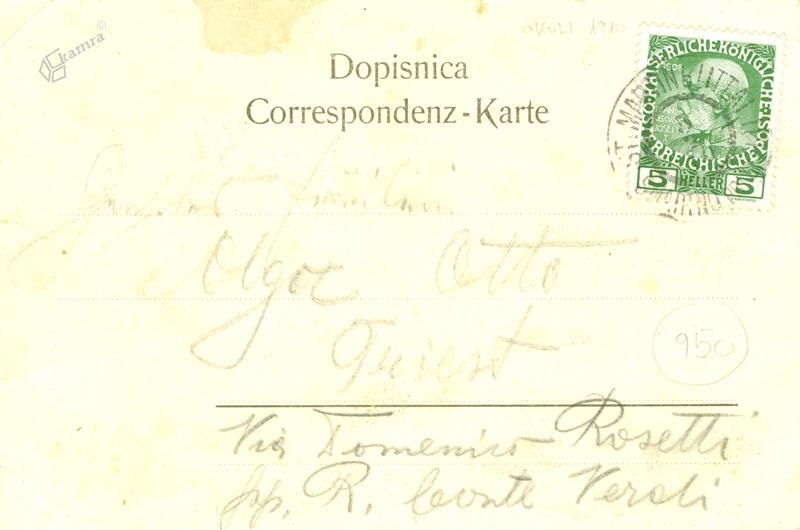 kamra ©
OKOLI 1910
Dopisnica
Correspondenz-Karte
KAISERLICHE KÖNIGLICHE
ÖSTERREICHISCHE POST
5 HELLER 5
ST. MARTIN LITTAI
Fräulein
Olga Otto
Triest
950
Via Domenico Rosetti
R. Conte Verdi